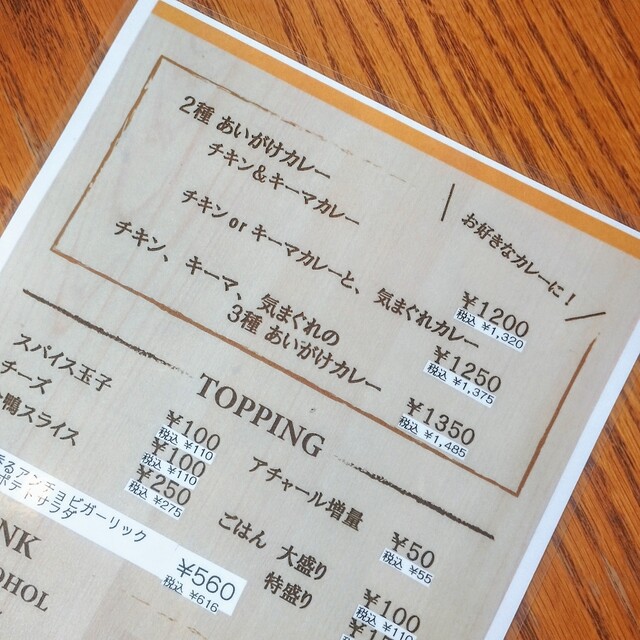 2種 あいがけカレー
チキン&キーマカレー
お好きなカレーに!
¥1200
税込 ¥1,320
チキン or キーマカレーと、気まぐれカレー
¥1250
税込 ¥1,375
チキン、キーマ、気まぐれの
3種 あいがけカレー
¥1350
税込 ¥1,485
TOPPING
スパイス玉子
¥100
税込 ¥110
チーズ
¥100
税込 ¥110
鴨スライス
¥250
税込 ¥275
アンチョビガーリック
ポテトサラダ
¥560
税込 ¥616
アチャール増量
¥50
税込 ¥55
ごはん 大盛り
¥100
税込 ¥110
特盛り
NK
OHOL